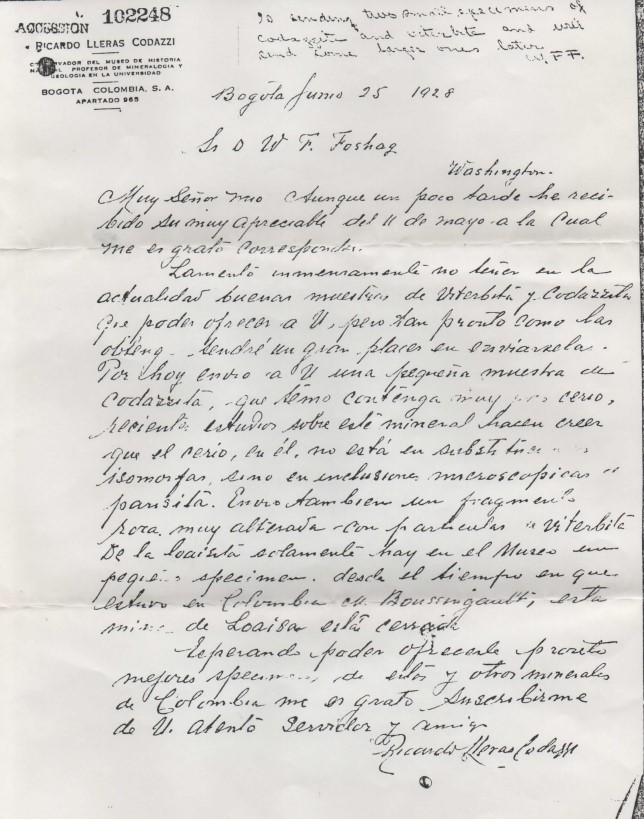 ACCESSION 102248
RICARDO LLERAS CODAZZI
CONSERVADOR DEL MUSEO DE HISTORIA
NATURAL PROFESOR DE MINERALOGIA Y
GEOLOGIA EN LA UNIVERSIDAD
BOGOTA COLOMBIA, S. A.
APARTADO 965
Is sending two small specimens of
codazzite and viterbite and will
send some larger ones later
W.F.F.
Bogóta Junio 25 1928
Sr D W F. Foshag
Washington.
Muy Señor mio Aunque un poco tarde he reci-
bido su muy apreciable del 11 de mayo a la cual
me es grato corresponder.
Lamento inmensamente no tener en la
actualidad buenas muestras de Viterbita y Codazzita
que poder ofrecer a U, pero tan pronto como las
obteng tendré un gran placer en enviarsela.
Por hoy envio a U una pequeña muestra de
Codazzita, que temo contenga muy poco cerio,
recientes estudios sobre este mineral hacen creer
que el cerio, en él, no está en substitucion
isomorfas, sino en inclusiones microscopicas
parisita. Envio tambien un fragmento
roca muy alterada con particulas viterbita
De la loaisita solamente hay en el Museo un
pequeño specimen. desde el tiempo en que
estuvo en Colombia M. Boussingault, esta
mina de Loaisa está cerrada
Esperando poder ofrecerle pronto
mejores specimen de estos y otros minerales
de Colombia me es grato suscribirme
de U. atento servidor y amigo
Ricardo Lleras Codazzi